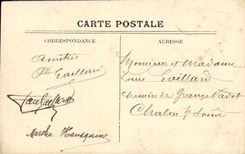 CARTE POSTALE
CORRESPONDANCE
ADRESSE
Amitiés
Gaillard
Monsieur et Madame
Louis Gaillard
Chemin de Grange Vadot
Chalon s/ Saône
Marthe